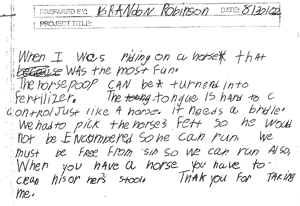 PREPARED BY: BRANDON Robinson DATE: 8/30/02
PROJECT TITLE:
When I was riding on a horse that
because WAS the most fun.
The horse poop CAN be turned into
fertilizer. The tongue IS hard to c
control Just like A horse. it needs a bridle.
We had to pick the horse's feet so he would
not be ENcombered so he can run. We
must be free from sin so we can run Also,
When you have a horse you have to
clean his or her's stool. Thank you for Taking
me.